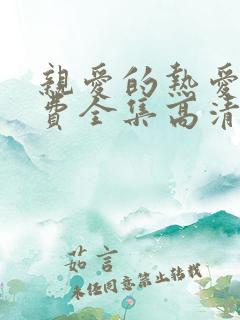 親愛的熱愛
費全集高清
茹言
未经同意禁止转载